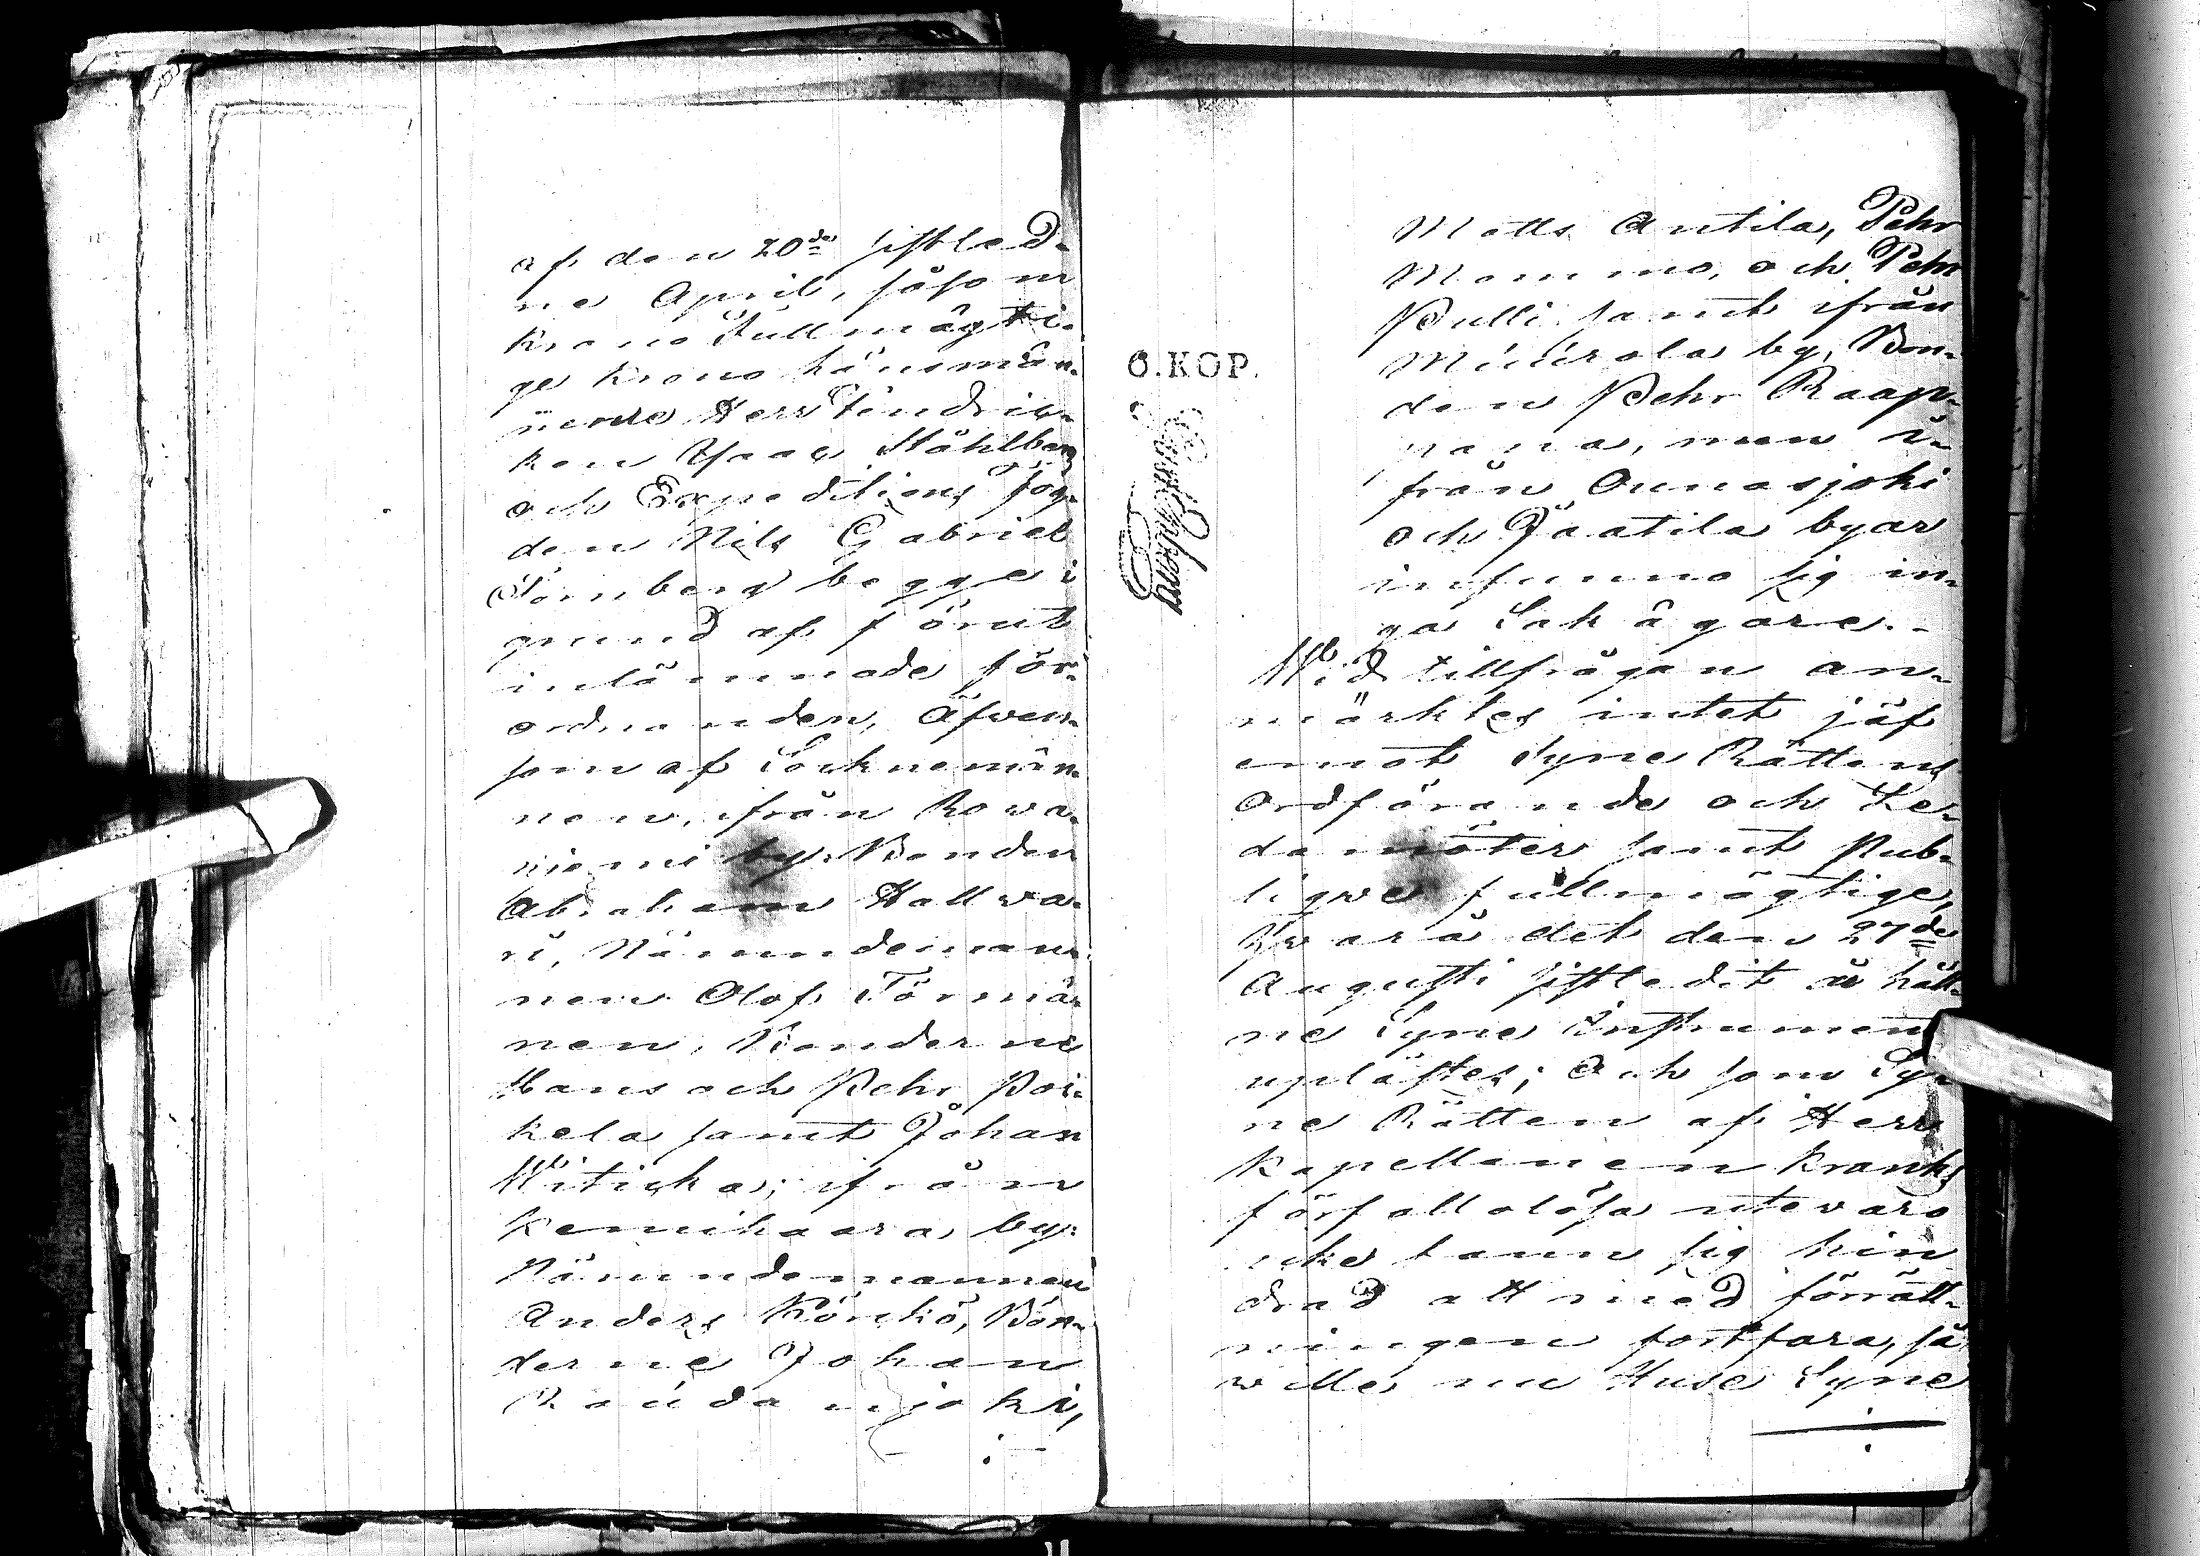 af den 20de sistled-
ne April, såsom
Krono Fullmägti-
ge Krono Länsmän-
nerne Herr Fendric-
ken Isaac Ståhlberg
och Expeditions Fog-
den Nils Gabriel
Törnberg begge i
grund af förut
inlämnade för-
ordnanden, Äfwen-
som af Socknemän-
nen, ifrån Rowa-
niemi by, Bonden
Abraham Hallwa-
ri, Nämndeman-
nen Olof Törmä-
nen, Bönderne
Hans och Pehr Poi-
kela samt Johan
Witicka; ifrån
Kemihaara by:
Nämndemannen
Anders Könkö, Bön-
derne Johan
Raudanjoki,
6.KOP.
Matts Antila, Pehr
Mommo, och Pehr
Pulli samt ifrån
Muurola by, Bon-
den Pehr Raap-
pana, men i-
från Ounasjoki
och Jaatila byar
infunno sig in-
ga Sakägare.-
Wid tillfrågan an-
märktes intet jäf
emot Syne Rättens
Ordförande och Le-
damöter samt Pub-
liqve fullmägtige,
Hwarå det den 27de
Augusti sistledit år håll-
ne Syne Instrument
uplästes; Och som Sy-
ne Rätten af Herr
Kapellanen Kranks
förfallolösa utevaro
icke fann sig hin
drad att med förrätt-
ningen fortfara, så
wille nu Huse Syne